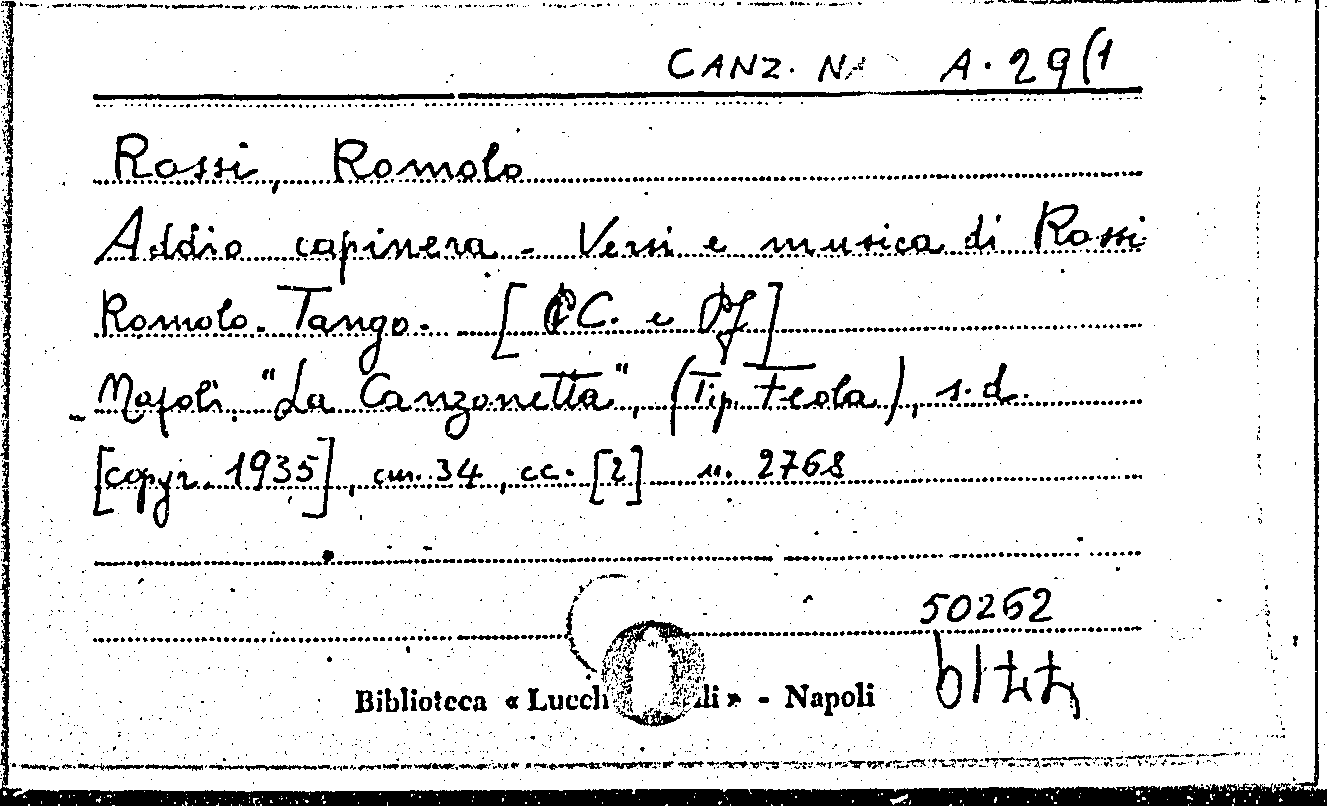 CANZ. NA A. 29(1
Rossi, Romolo
Addio capinera - Versi e musica di Rossi
Romolo. Tango. - [PC. e Pf]
- Napoli, "La Canzonetta", (Tip. Feola), s.d.
[copyr. 1935], cm. 34, cc. [2] n. 2768
50262
Biblioteca « Lucch li » - Napoli